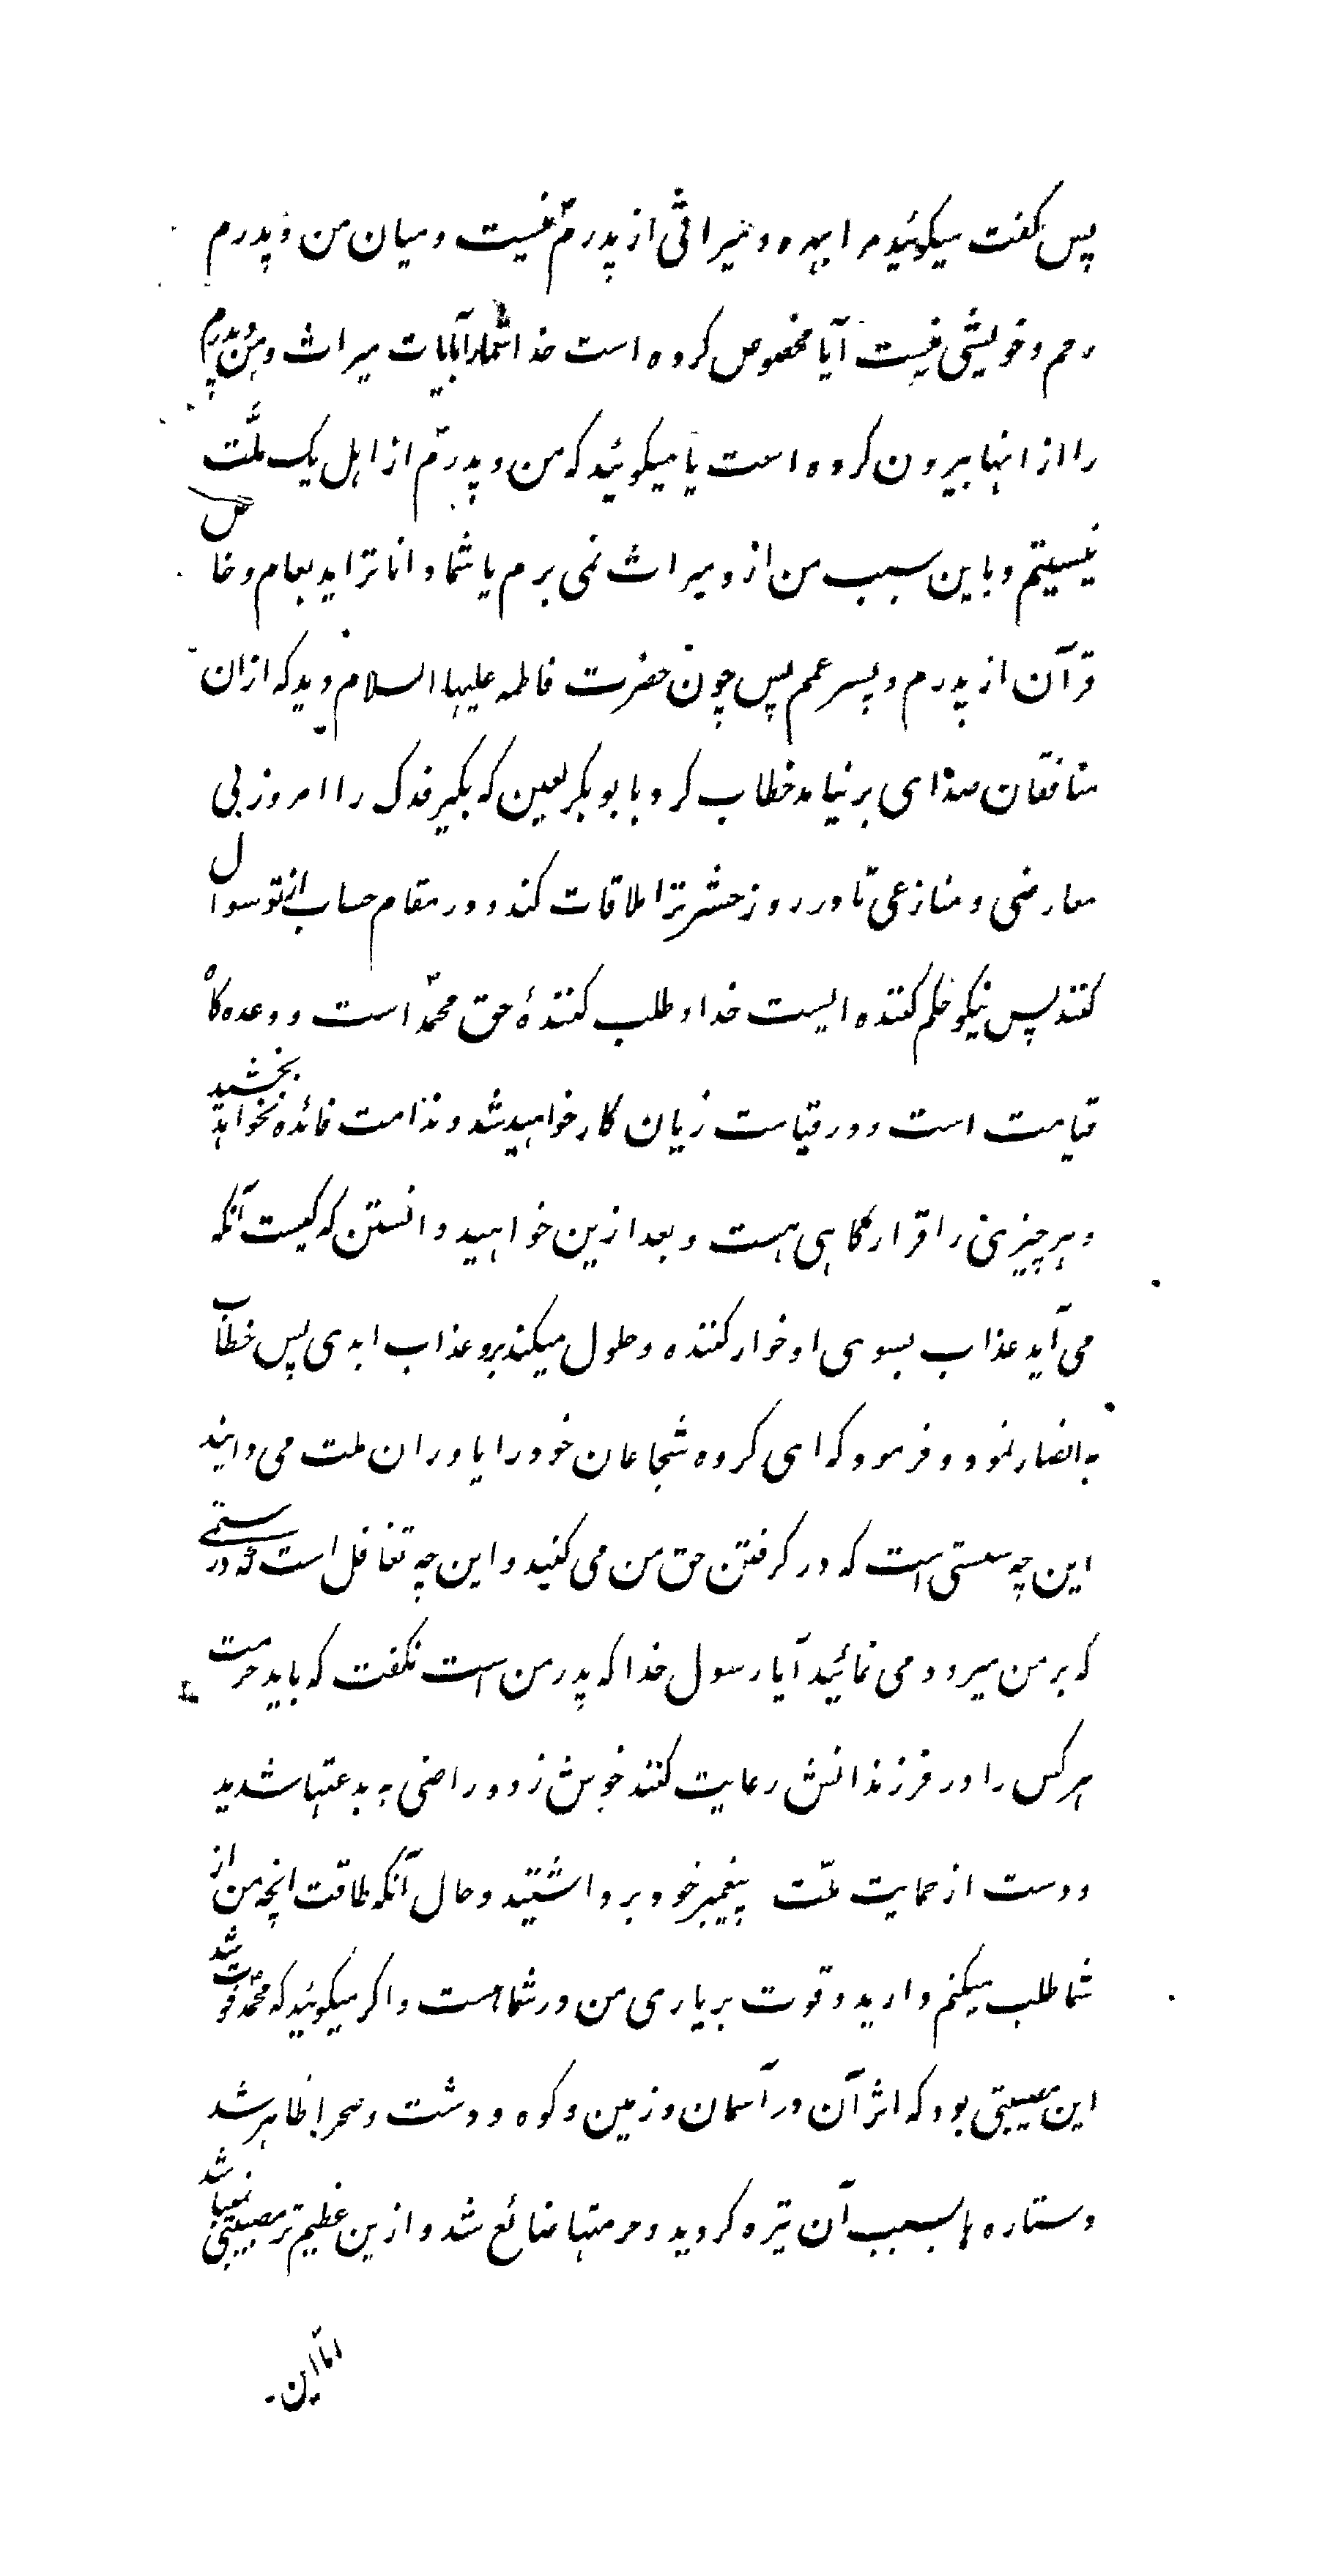 پس گفت میگوئید مرا بهره و میراثی از پدرم نیست و میان من و پدرم
رحم و خویشی نیست آیا مخصوص کرده است خدا شما را بآیات میراث و من و پدرم
را از انها بیرون کرده است یا میگوئید که من و پدرم از اهل یک ملّت
نیستیم و باین سبب من از و میراث نمی برم یا شما داناترَاید بعام و خاص
قرآن از پدرم و پسر عمم پس چون حضرت فاطمه علیها السلام دید که ازان
منافقان صدای بر نیامد خطاب کرد با بوبکر لعین که بگیر فدک را امروز بی
معارضی و منازعی تا در روز حشر ترا ملاقات کند و در مقام حساب از تو سوال
کنند پس نیکو حکم کننده ایست خدا و طلب کنندهٔ حق محمّد است و وعده گاه
قیامت است و در قیامت زیان کار خواهید شد و ندامت فائده نخواهد بخشید
و هر چیزی را قرارگاهی هست و بعد ازین خواهید دانستن که کیست آنکه
می آید عذاب بسوی او خوار کننده و حلول میکند برو عذاب ابدی پس خطاب
به انصار نمود و فرمود که ای گروه شجاعان خود را یاوران ملت می دانید
این چه سستی است که در گرفتن حق من می کنید و این چه تغافل است که در ستمی
که بر من میرود می نمائید آیا رسول خدا که پدر من است نگفت که باید حرمت
هر کس را در فرزندانش رعایت کنند خوش زود راضی به بدعتها شدید
و دست از حمایت ملّت پیغمبر خود برداشتید و حال آنکه طاقت انچه من از
شما طلب میکنم دارید و قوت بر یاری من در شما هست و اگر میگوئید که محمّدؐ فوت شد
این مصیبتی بود که اثر آن در آسمان و زمین و کوه و دشت و صحرا ظاهر شد
و ستاره ها بسبب آن تیره گردید و حرمتها ضائع شد و ازین عظیم تر مصیبتی نمیباشد
اما این